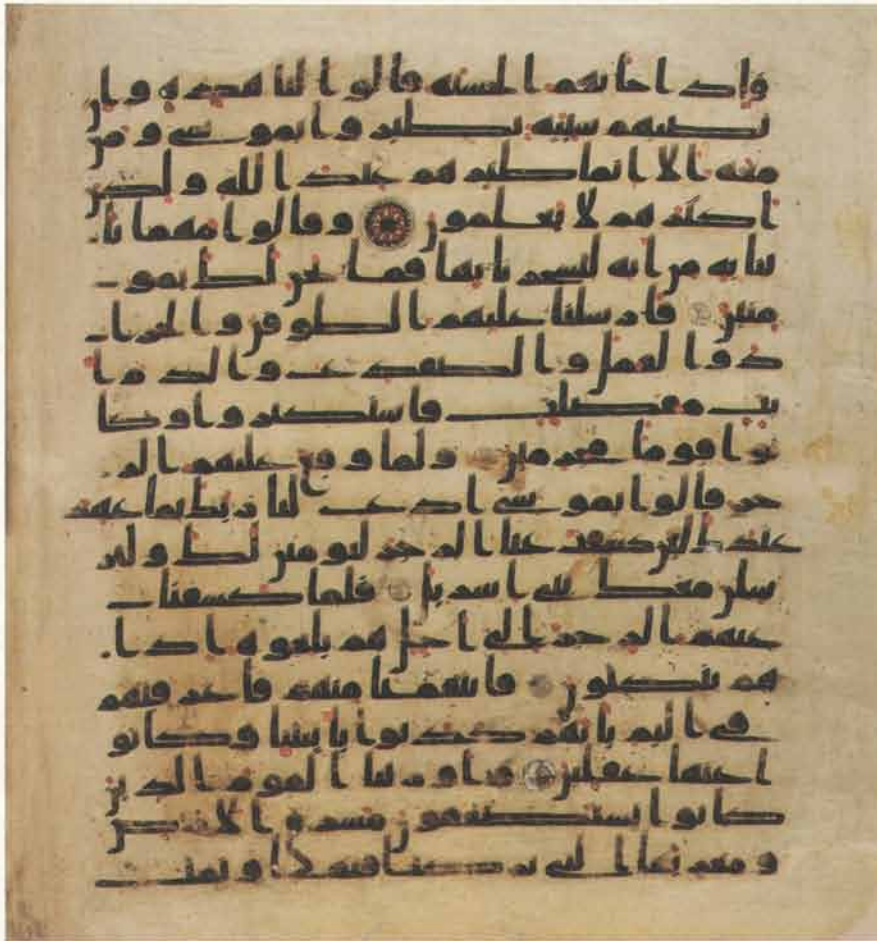 فاذا جاتهم الحسنه قالوا لنا هذه وان
تصبهم سيئه يطيروا بموسى ومن
معه الا انما طيرهم عند الله ولكن
اكثرهم لا يعلمون وقالوا مهما تا
تنا به من ايه لتسحرنا بها فما نحن لك بمو
منين فارسلنا عليهم الطوفن والجرا
د والقمل والضفدع والدم ا
يت مفصلت فاستكبروا وكا
نوا قوما مجرمين ولما وقع عليهم الر
جز قالوا يموسى ادع لنا ربك بما عهد
عندك لئن كشفت عنا الرجز لنومنن لك ولنر
سلن معك بنى اسريل فلما كشفنا
عنهم الرجز الى اجل هم بلغوه اذا
هم ينكثون فانتقمنا منهم فاغرقنهم
فى اليم بانهم كذبوا بايتنا وكانو
ا عنها غفلين واورثنا القوم الذين
كانوا يستضعفون مشرق الارض
ومغربها التى بركنا فيها وتمت